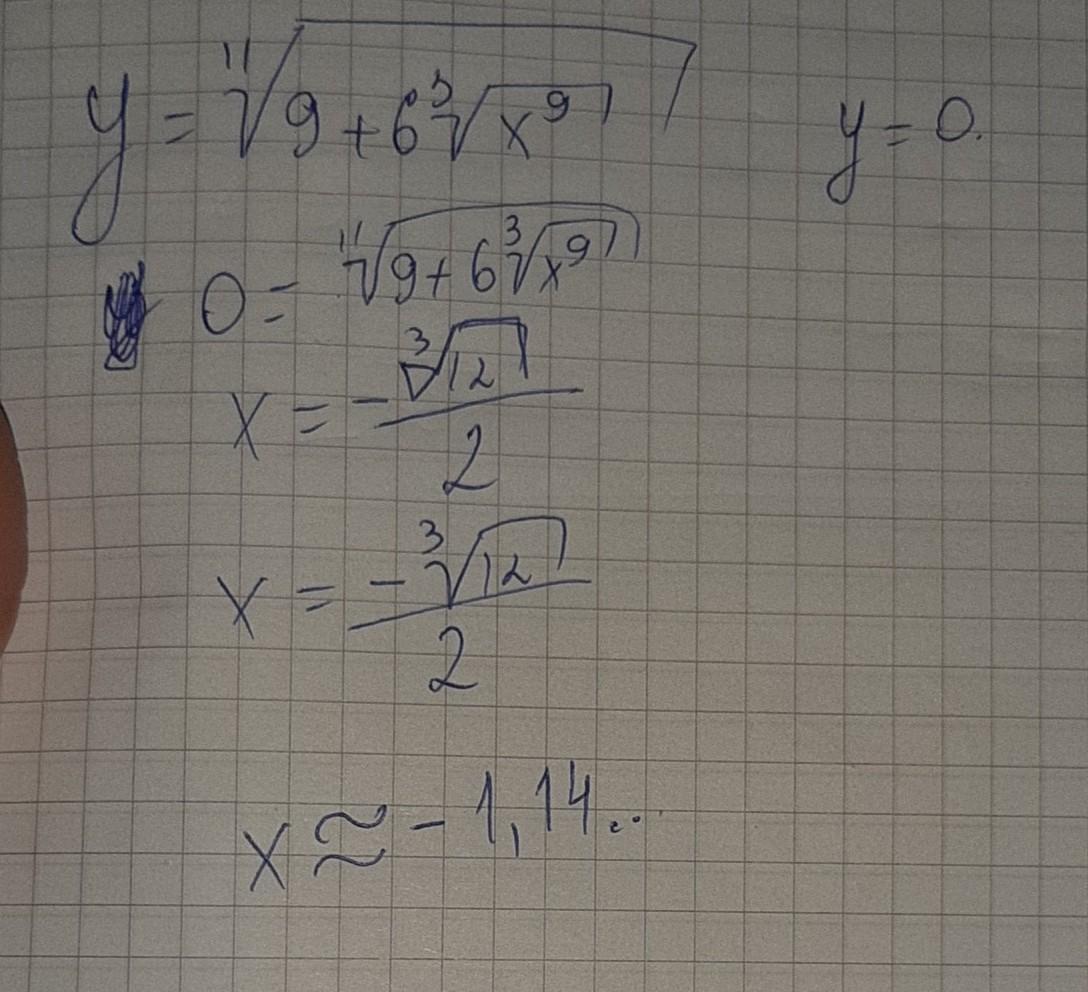 y = ¹¹√(9 + 6 ³√(x⁹)) y = 0.
0 = ¹¹√(9 + 6 ³√(x⁹))
x = -³√12 / 2
x = -³√12 / 2
x ≈ -1,14...